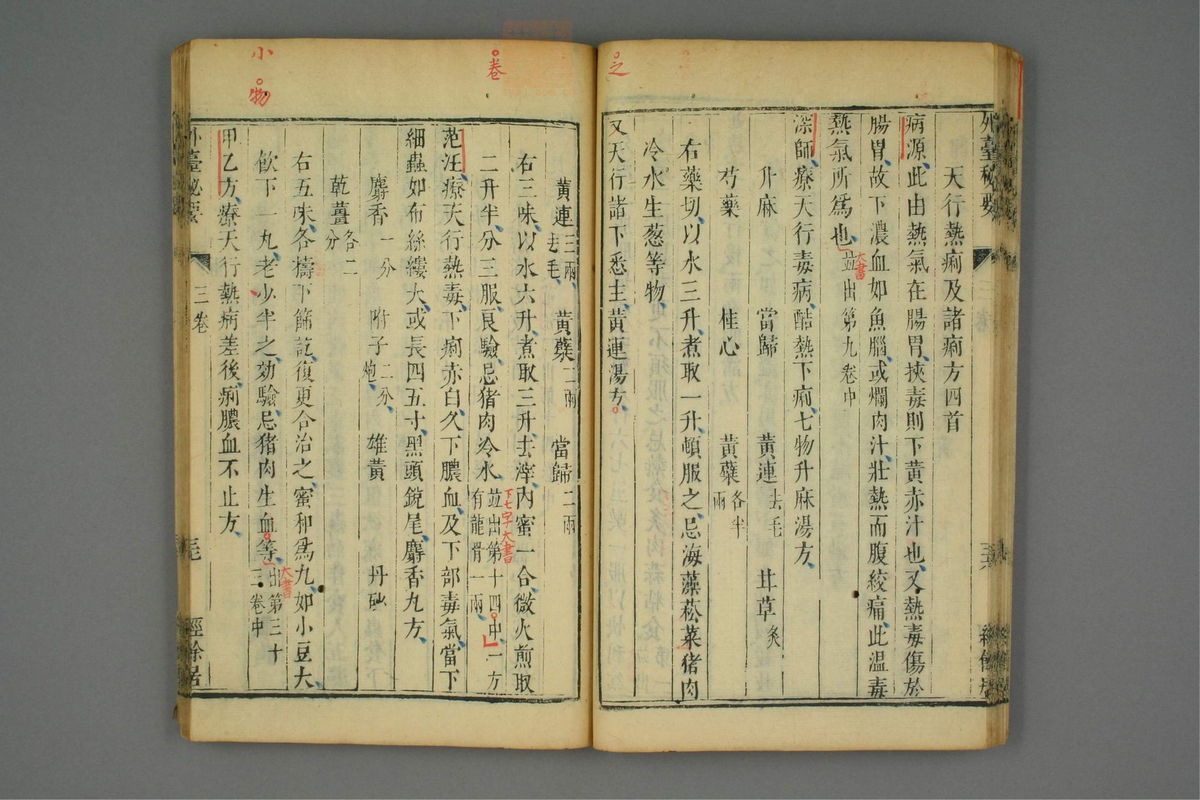 之
天行熱痢及諸痢方四首
病源、此由熱氣在腸胃、挾毒則下黃赤汁也、又熱毒傷於
腸胃、故下濃血如魚腦、或爛肉汁、壯熱而腹絞痛、此溫毒
熱氣所爲也、並出第九卷中
大書
深師、療天行毒病、酷熱下痢、七物升麻湯方、
升麻 當歸 黃連去毛 甘草炙
芍藥 桂心 黃蘗各半兩
右藥切、以水三升、煮取一升、頓服之、忌海藻菘菜猪肉
冷水生葱等物、
又天行諸下悉主、黃連湯方、
卷
黃連三兩、去毛、 黃蘗二兩 當歸二兩
右三味、以水六升、煮取三升、去滓、內蜜一合、微火煎取
二升半、分三服、良驗、忌猪肉冷水、並出第十四中、一方有龍骨一兩、
下七字大書
范汪、療天行熱毒、下痢赤白、久下膿血、及下部毒氣、當下
細蟲如布絲縷大、或長四五寸、黑頭銳尾、麝香丸方、
麝香一分 附子二分、炮、 雄黃 丹砂
乾薑各二分
右五味、各擣下篩訖、復更合治之、蜜和爲丸、如小豆大、
飲下一丸、老少半之、効驗、忌猪肉生血等、出第三十三卷中
大書
甲乙方、療天行熱病差後、痢膿血不止方、
小
物
外臺秘要 三卷 經餘居